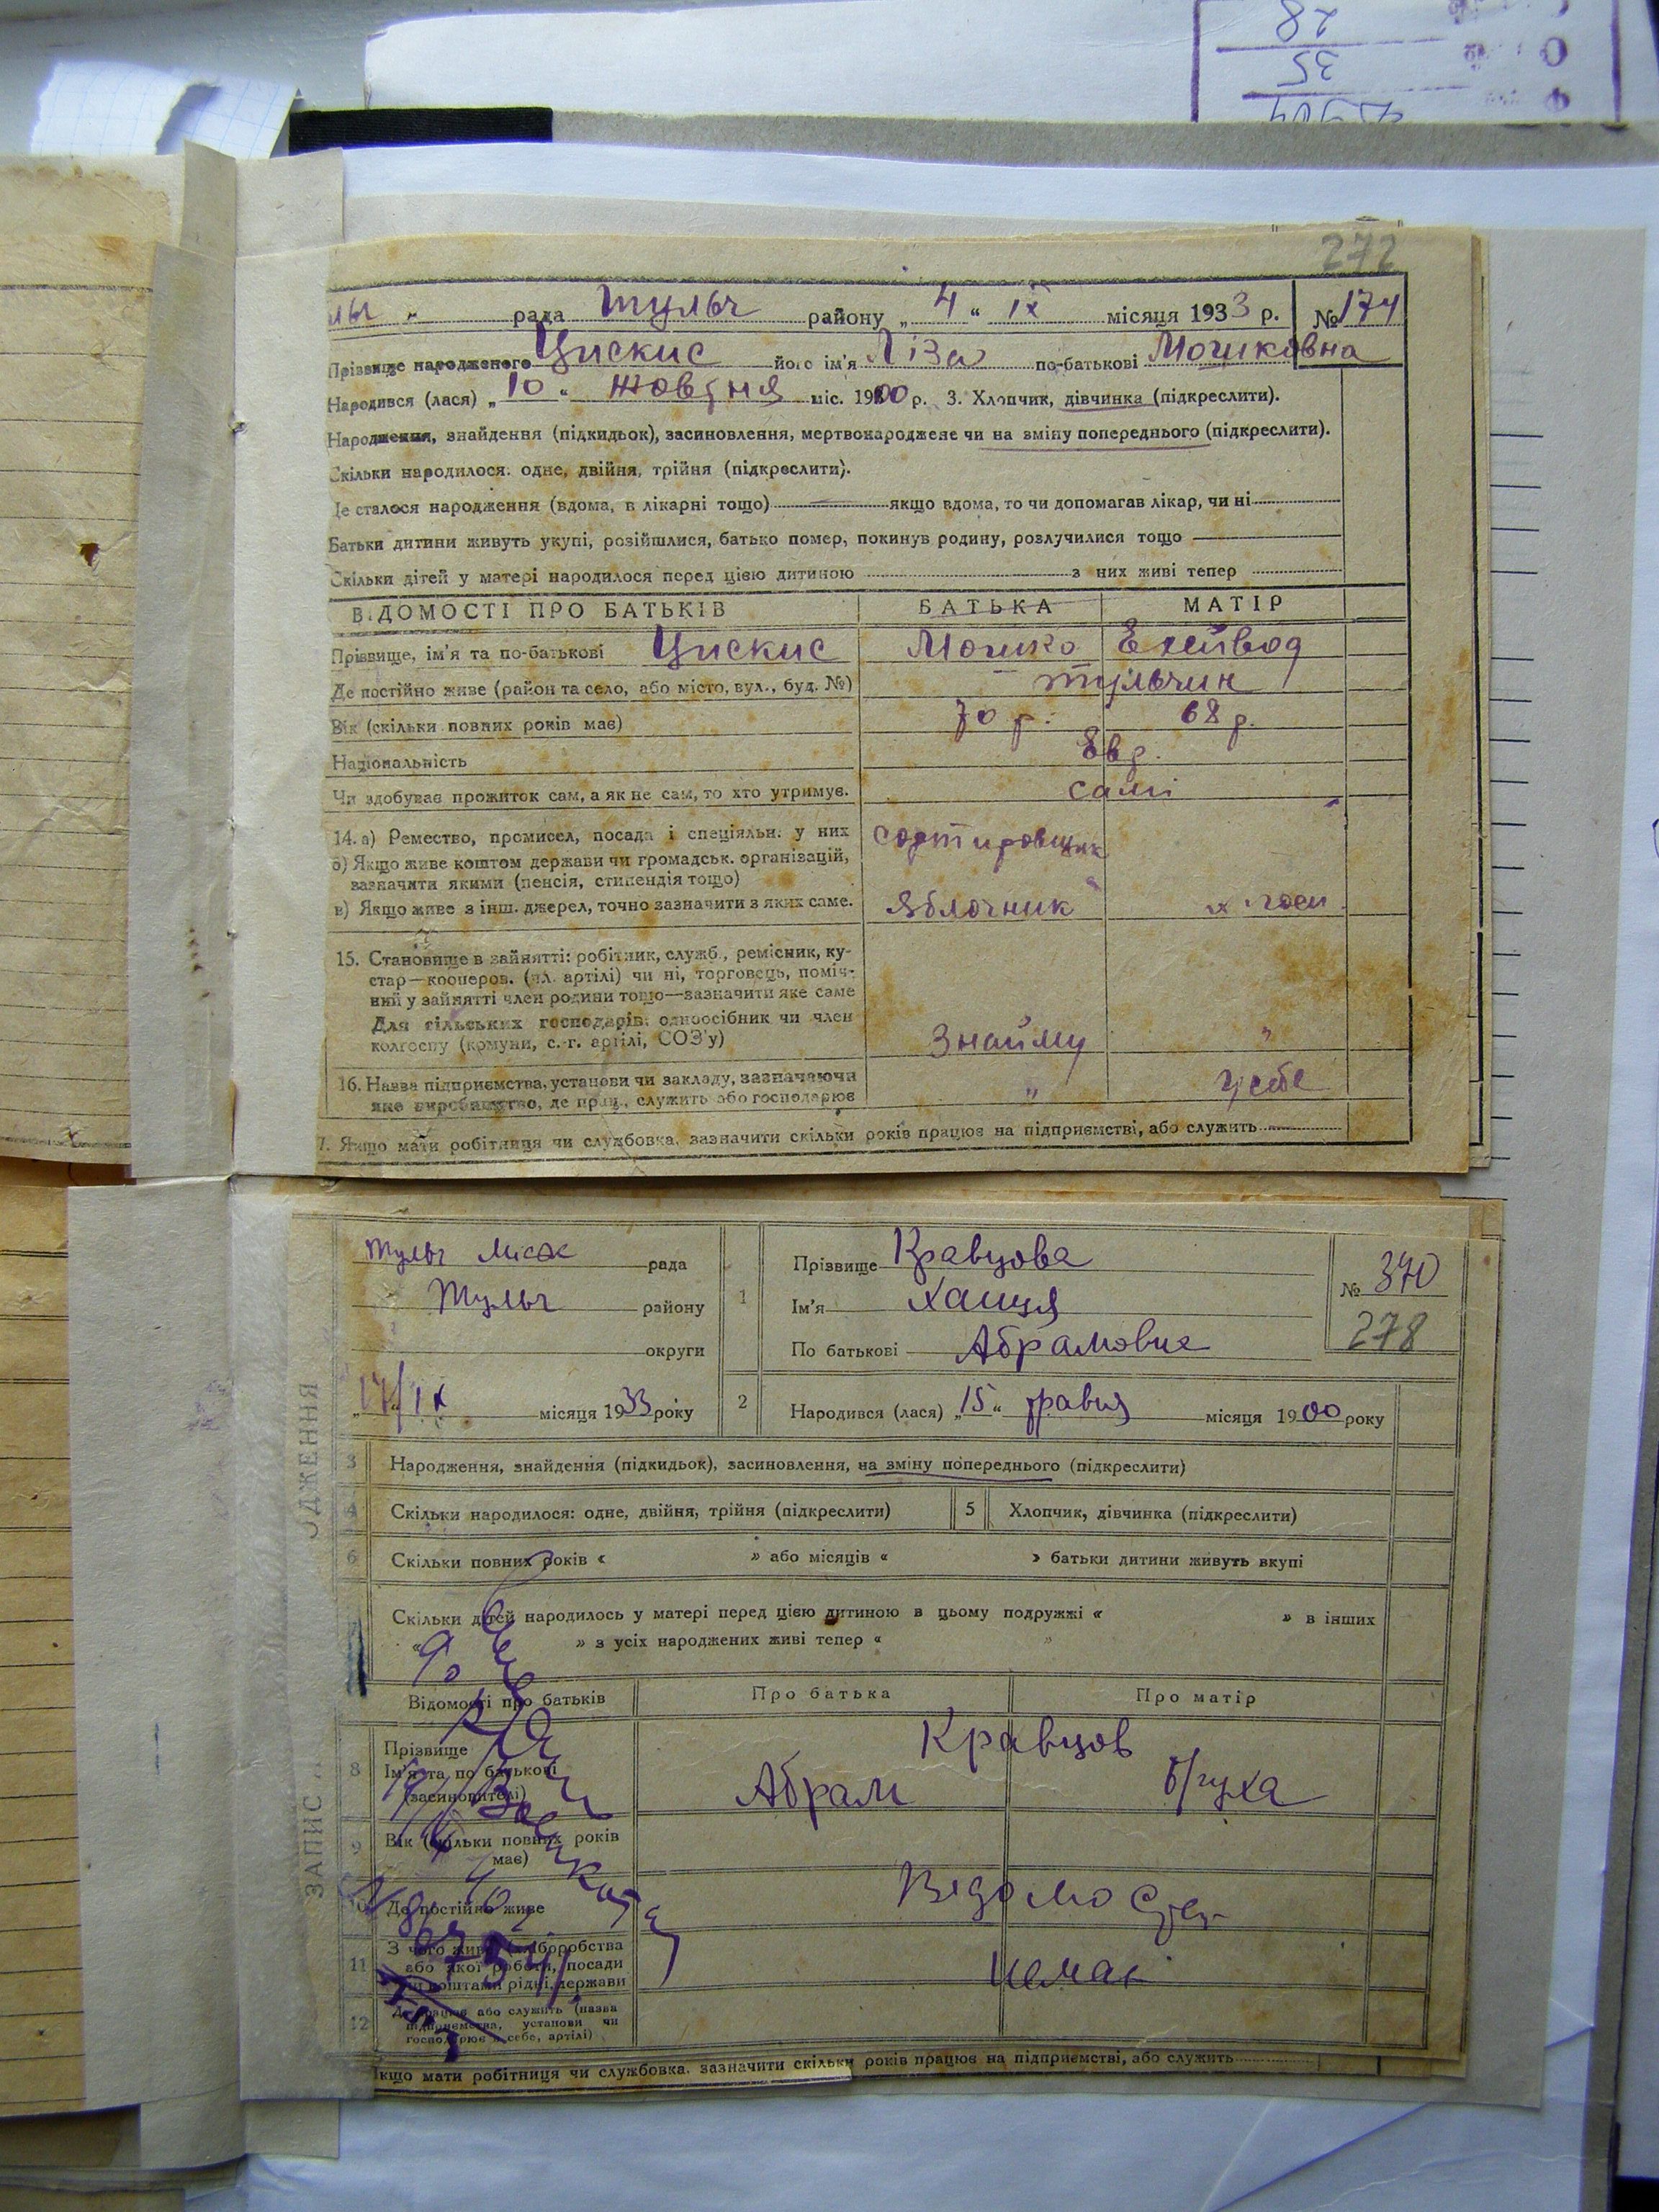 28
35
272
рада Тульч району „ 4 “ IX місяця 1933 р. № 174
Прізвище народженого Цискис його ім'я Ліза по-батькові Мошковна
Народився (лася) „ 10 “ жовтня міс. 1900 р. 3. Хлопчик, дівчинка (підкреслити).
Народження, знайдення (підкидьок), засиновлення, мертвонароджене чи на зміну попереднього (підкреслити).
Скільки народилося: одне, двійня, трійня (підкреслити).
Де сталося народження (вдома, в лікарні тощо) якщо вдома, то чи допомагав лікар, чи ні
Батьки дитини живуть укупі, розійшлися, батько помер, покинув родину, розлучилися тощо
Скільки дітей у матері народилося перед цією дитиною з них живі тепер
ВІДОМОСТІ ПРО БАТЬКІВ БАТЬКА МАТІР
Прізвище, ім'я та по-батькові Цискис Мошко
Де постійно живе (район та село, або місто, вул., буд. №) Тульчин
Вік (скільки повних років має) 70 р. 68 р.
Національність Євр.
Чи здобуває прожиток сам, а як не сам, то хто утримує. самі
14. а) Ремество, промисел, посада і спеціяльн. у них сортировщик
б) Якщо живе коштом держави чи громадськ. організацій,
зазначити якими (пенсія, стипендія тощо)
в) Якщо живе з інш. джерел, точно зазначити з яких саме. Яблочник
15. Становище в зайнятті: робітник, служб., ремісник, ку-
стар—кооперов. (чл. артілі) чи ні, торговець, поміч-
ний у зайнятті член родини тощо—зазначити яке саме
Для сільських господарів: одноосібник чи член
колгоспу (комуни, с.-г. артілі, СОЗ'у) З найму "
16. Назва підприємства, установи чи закладу, зазначаючи
яке виробництво, де прац., служить або господарює " у себе
7. Якщо мати робітниця чи службовка, зазначити скільки років працює на підприємстві, або служить
Тульч міськ рада
Тульч району
округи
17/IX місяця 1933 року
1 Прізвище Кравцова
Ім'я Ханця
По батькові Абрамовна
№ 370
278
2 Народився (лася) „ 15 “ травня місяця 1900 року
ЗАПИС ОДЖЕННЯ
3 Народження, знайдення (підкидьок), засиновлення, на зміну попереднього (підкреслити)
4 Скільки народилося: одне, двійня, трійня (підкреслити) 5 Хлопчик, дівчинка (підкреслити)
6 Скільки повних років « » або місяців « » батьки дитини живуть вкупі
7 Скільки дітей народилось у матері перед цією дитиною в цьому подружжі « » в інших
« » з усіх народжених живі тепер « »
Відомості про батьків Про батька Про матір
8 Прізвище Кравцов
Ім'я та по батькові Абрам
(засиновителі)
9 Вік (скільки повних років
має)
10 Де постійно живе Відомостей
11 З чого живе (хліборобства
або якої роботи, посади
чи коштами рідні, держави немає
12 Де працює або служить (назва
підприємства, установи чи
господарює в себе, артілі)
Якщо мати робітниця чи службовка, зазначити скільки років працює на підприємстві, або служить